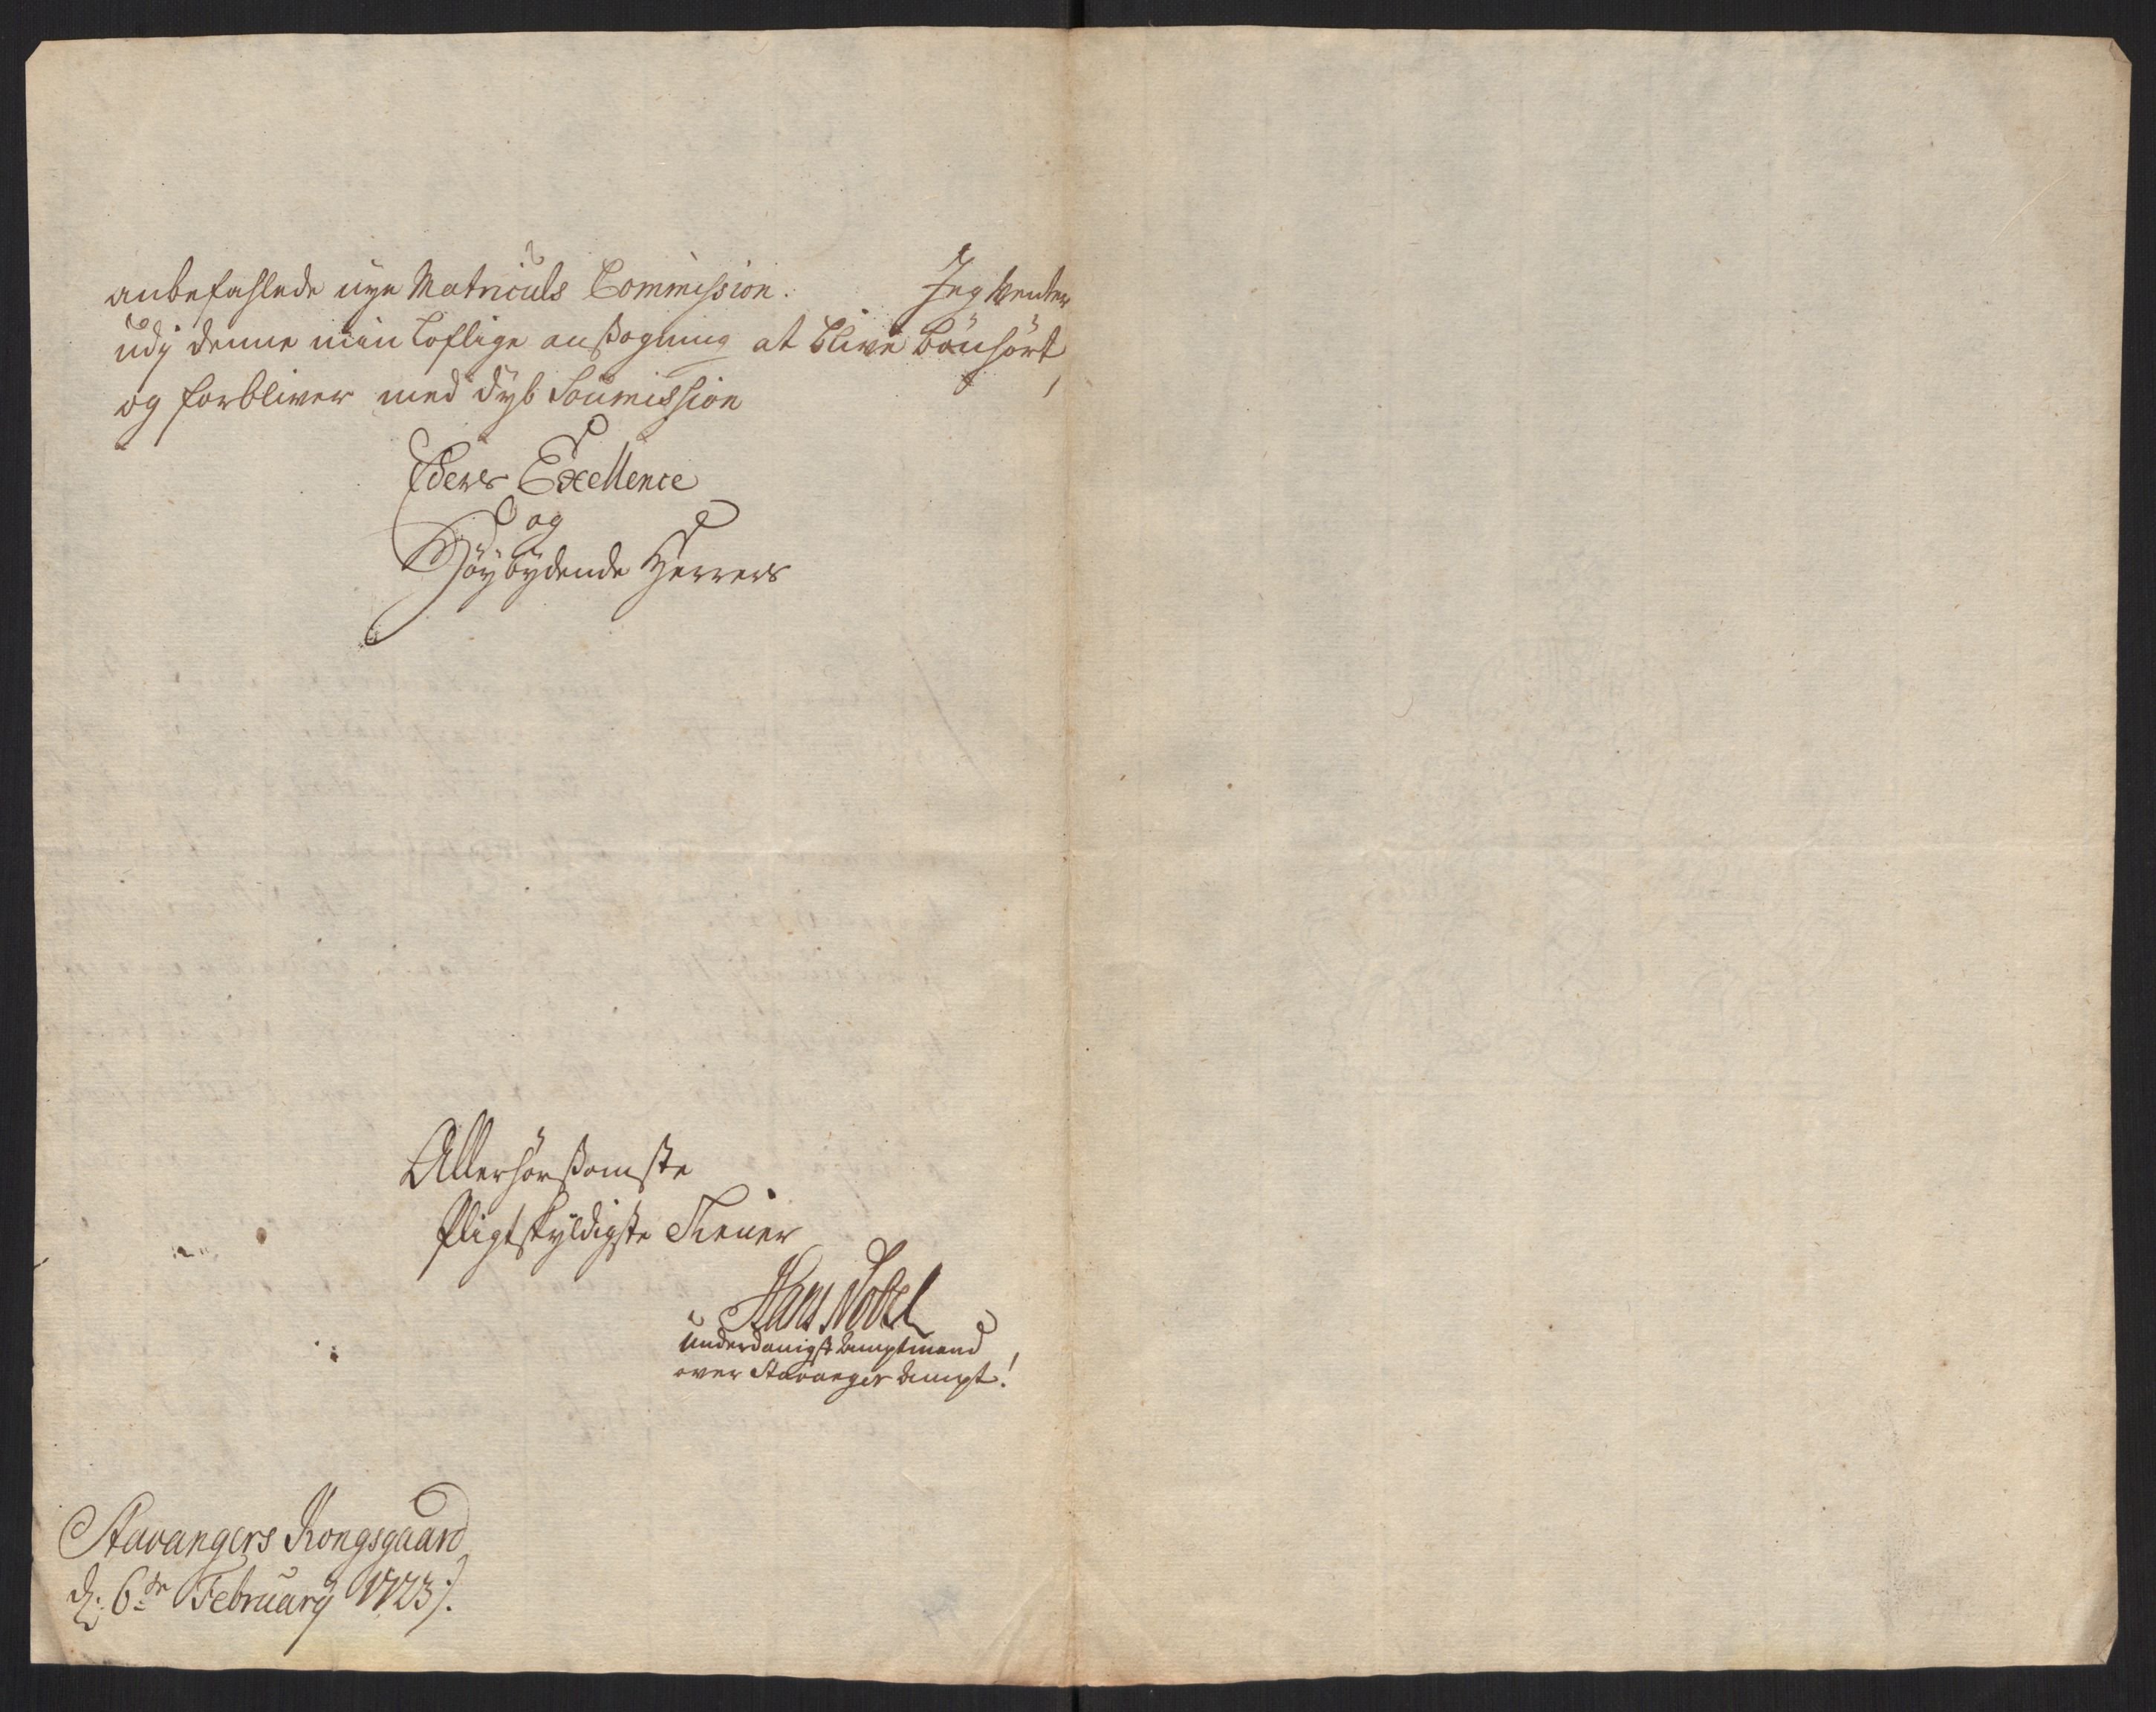 anbefahlede nye Matriculs Commission. Jeg venter
udj denne min loflige ansøgning at blive bönhört,
og forbliver med dyb Soumission
Eders Excellence
og
Höybydende Herrers
Allerhörsomste
Pligtskyldigste Tiener
Hans Nobel
underdanigst Amptmand
over Stavanger Ampt!
Stavangers Kongsgaard
d: 6te February 1723